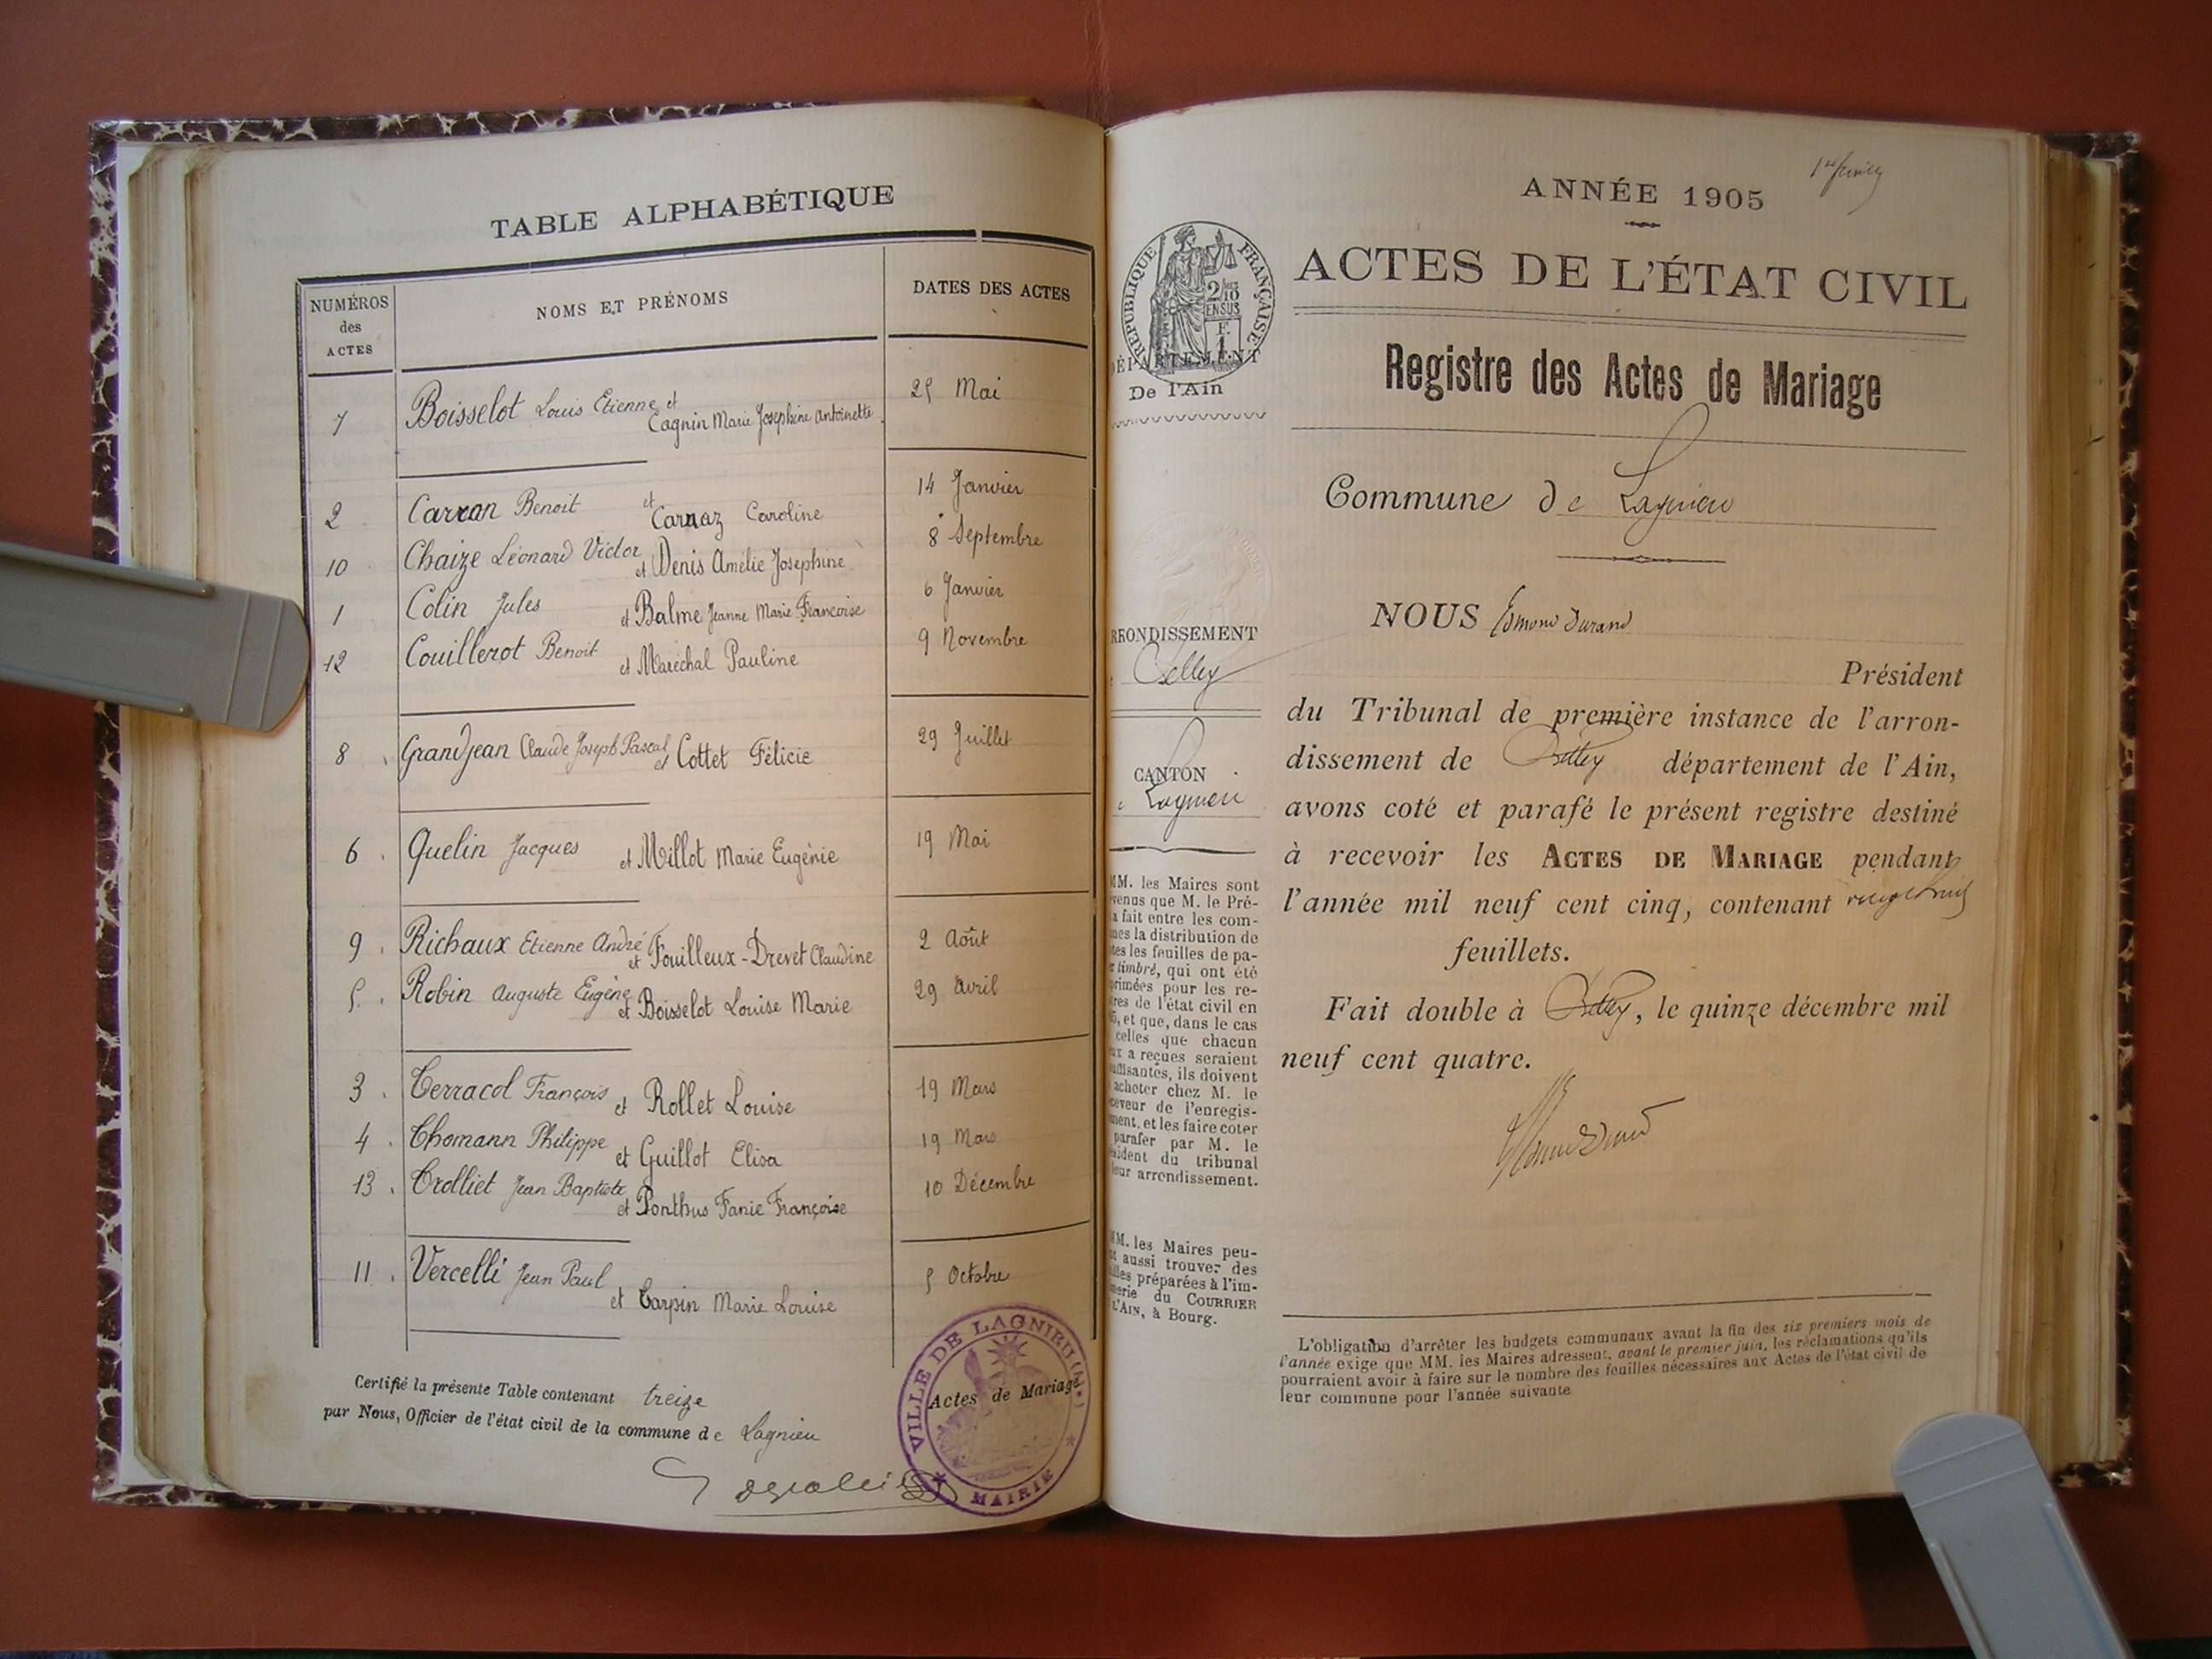 TABLE ALPHABÉTIQUE
NUMÉROS des ACTES
NOMS ET PRÉNOMS
DATES DES ACTES
7 Boisselot Louis Etienne et Cagnin Marie Josephine Antoinette 25 Mai
2 Carran Benoit et Carnaz Caroline 14 Janvier
10 Chaize Léonard Victor et Denis Amélie Josephine 8 Septembre
1 Colin Jules et Balme Jeanne Marie Francoise 6 Janvier
12 Couillerot Benoit et Maréchal Pauline 9 Novembre
8 Grandjean Claude Joseph Pascal et Cottet Félicie 29 Juillet
6 Quelin Jacques et Millot Marie Eugénie 19 Mai
9 Richaux Etienne André et Fouilleux-Drevet Claudine 2 Août
5 Robin Auguste Eugène et Boisselot Louise Marie 29 Avril
3 Terracol François et Rollet Louise 19 Mars
4 Thomann Philippe et Guillot Elisa 19 Mars
13 Trolliet Jean Baptiste et Ponthus Fanie Françoise 10 Décembre
11 Vercelli Jean Paul et Tarpin Marie Louise 5 Octobre
Certifié la présente Table contenant treize Actes de Mariage
par Nous, Officier de l'état civil de la commune de Lagnieu
VILLE DE LAGNIEU (AIN)
MAIRIE
ANNÉE 1905
ACTES DE L'ÉTAT CIVIL
RÉPUBLIQUE FRANÇAISE
2/10 EN SUS
F. 1
DÉPARTEMENT
De l'Ain
Registre des Actes de Mariage
Commune de Lagnieu
RRONDISSEMENT
Belley
CANTON
Lagnieu
MM. les Maires sont
venus que M. le Pré-
a fait entre les com-
nes la distribution de
tes les feuilles de pa-
r timbré, qui ont été
primées pour les re-
tres de l'état civil en
5, et que, dans le cas
celles que chacun
ux a reçues seraient
uffisantes, ils doivent
acheter chez M. le
ceveur de l'enregis-
ment, et les faire coter
parafer par M. le
ésident du tribunal
leur arrondissement.
MM. les Maires peu-
t aussi trouver des
illes préparées à l'im-
merie du COURRIER
L'AIN, à Bourg.
NOUS Edmond Durand
Président
du Tribunal de première instance de l'arron-
dissement de Belley département de l'Ain,
avons coté et parafé le présent registre destiné
à recevoir les ACTES DE MARIAGE pendant
l'année mil neuf cent cinq, contenant vingt huit
feuillets.
Fait double à Belley, le quinze décembre mil
neuf cent quatre.
L'obligation d'arrêter les budgets communaux avant la fin des six premiers mois de
l'année exige que MM. les Maires adressent, avant le premier juin, les réclamations qu'ils
pourraient avoir à faire sur le nombre des feuilles nécessaires aux Actes de l'état civil de
leur commune pour l'année suivante